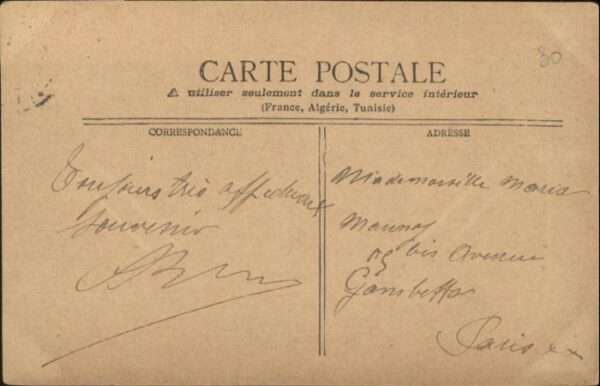 30
CARTE POSTALE
A utiliser seulement dans le service intérieur
(France, Algérie, Tunisie)
CORRESPONDANCE
ADRESSE
Toujours très affectueux
souvenir
Mademoiselle Maria
bis Avenue
Gambetta
Paris